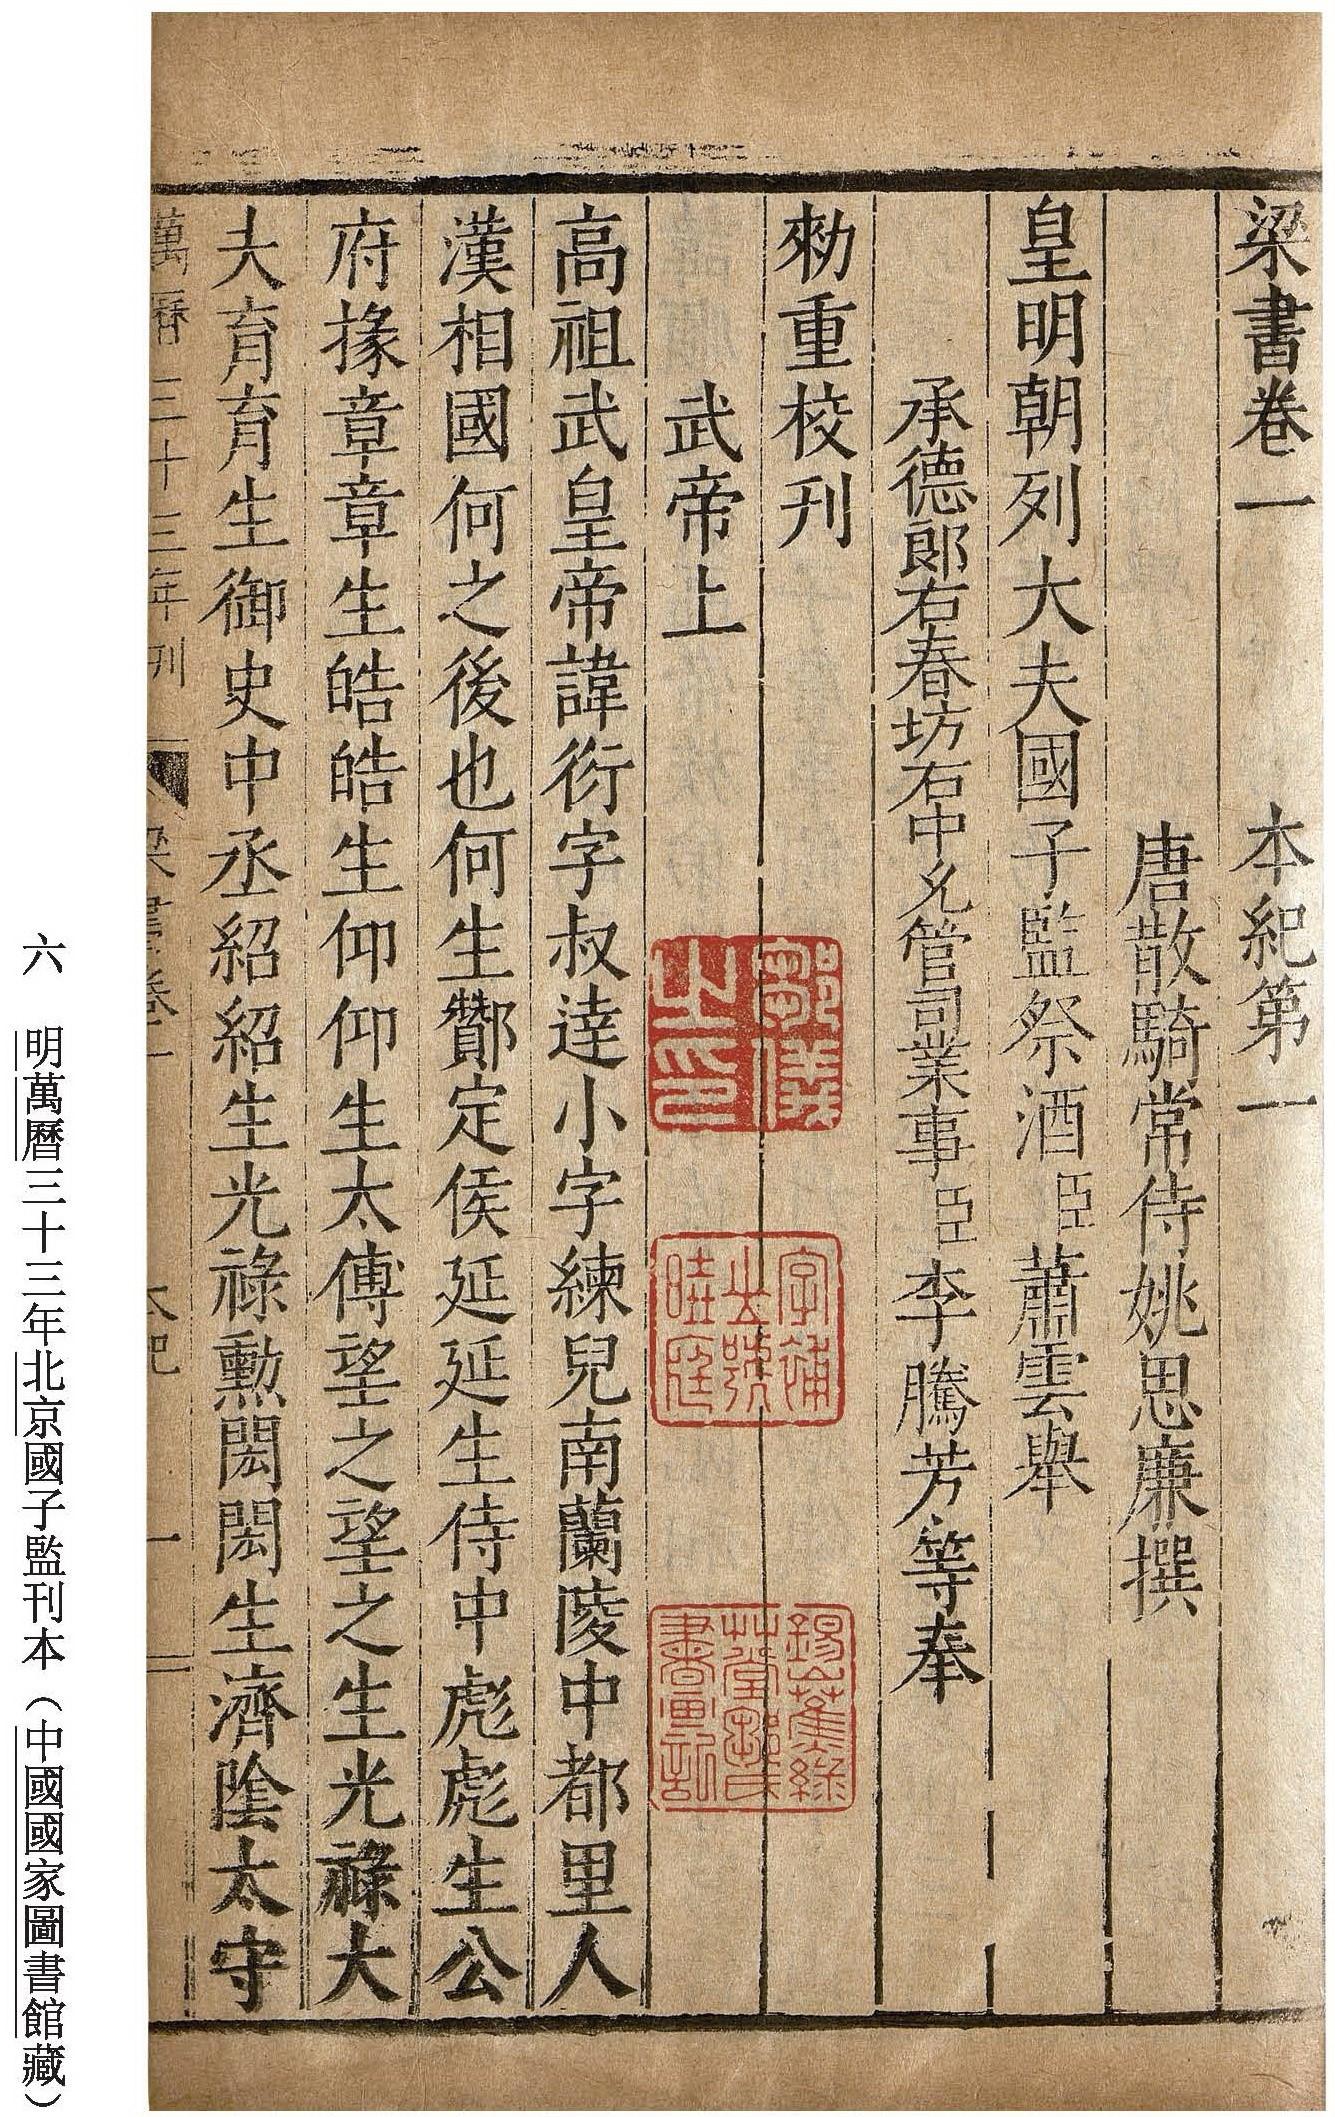 梁書卷一　本紀第一
唐散騎常侍姚思廉撰
皇明朝列大夫國子監祭酒臣蕭雲舉
承德郎右春坊右中允管司業事臣李騰芳等奉
勑重校刊
武帝上
高祖武皇帝諱衍字叔達小字練兒南蘭陵中都里人
漢相國何之後也何生酇定侯延延生侍中彪彪生公
府掾章章生皓皓生仰仰生太傅望之望之生光祿大
夫育育生御史中丞紹紹生光祿勳閎閎生濟陰太守
萬曆三十三年刊　梁書卷一　本紀　一
之印
字
錫
書畫記
六　明萬曆三十三年北京國子監刊本（中國國家圖書館藏）